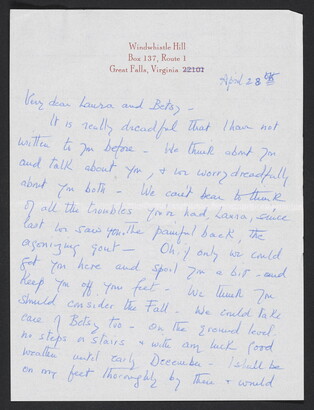 Windwhistle Hill
Box 137, Route 1
Great Falls, Virginia 22101
April 28th
Very dear Laura and Betsy -
It is really dreadful that I have not
written to you before - We think about you
and talk about you, & we worry dreadfully
about you both - We can't bear to think
of all the troubles you've had, Laura, since
last we saw you. The painful back, the
agonizing gout - Oh, if only we could
get you here and spoil you a bit - and
keep you off your feet - We think you
should consider the Fall - We could take
care of Betsy too - on the ground level
no steps or stairs & with any luck good
weather until early December - I shall be
on my feet thoroughly by then & would